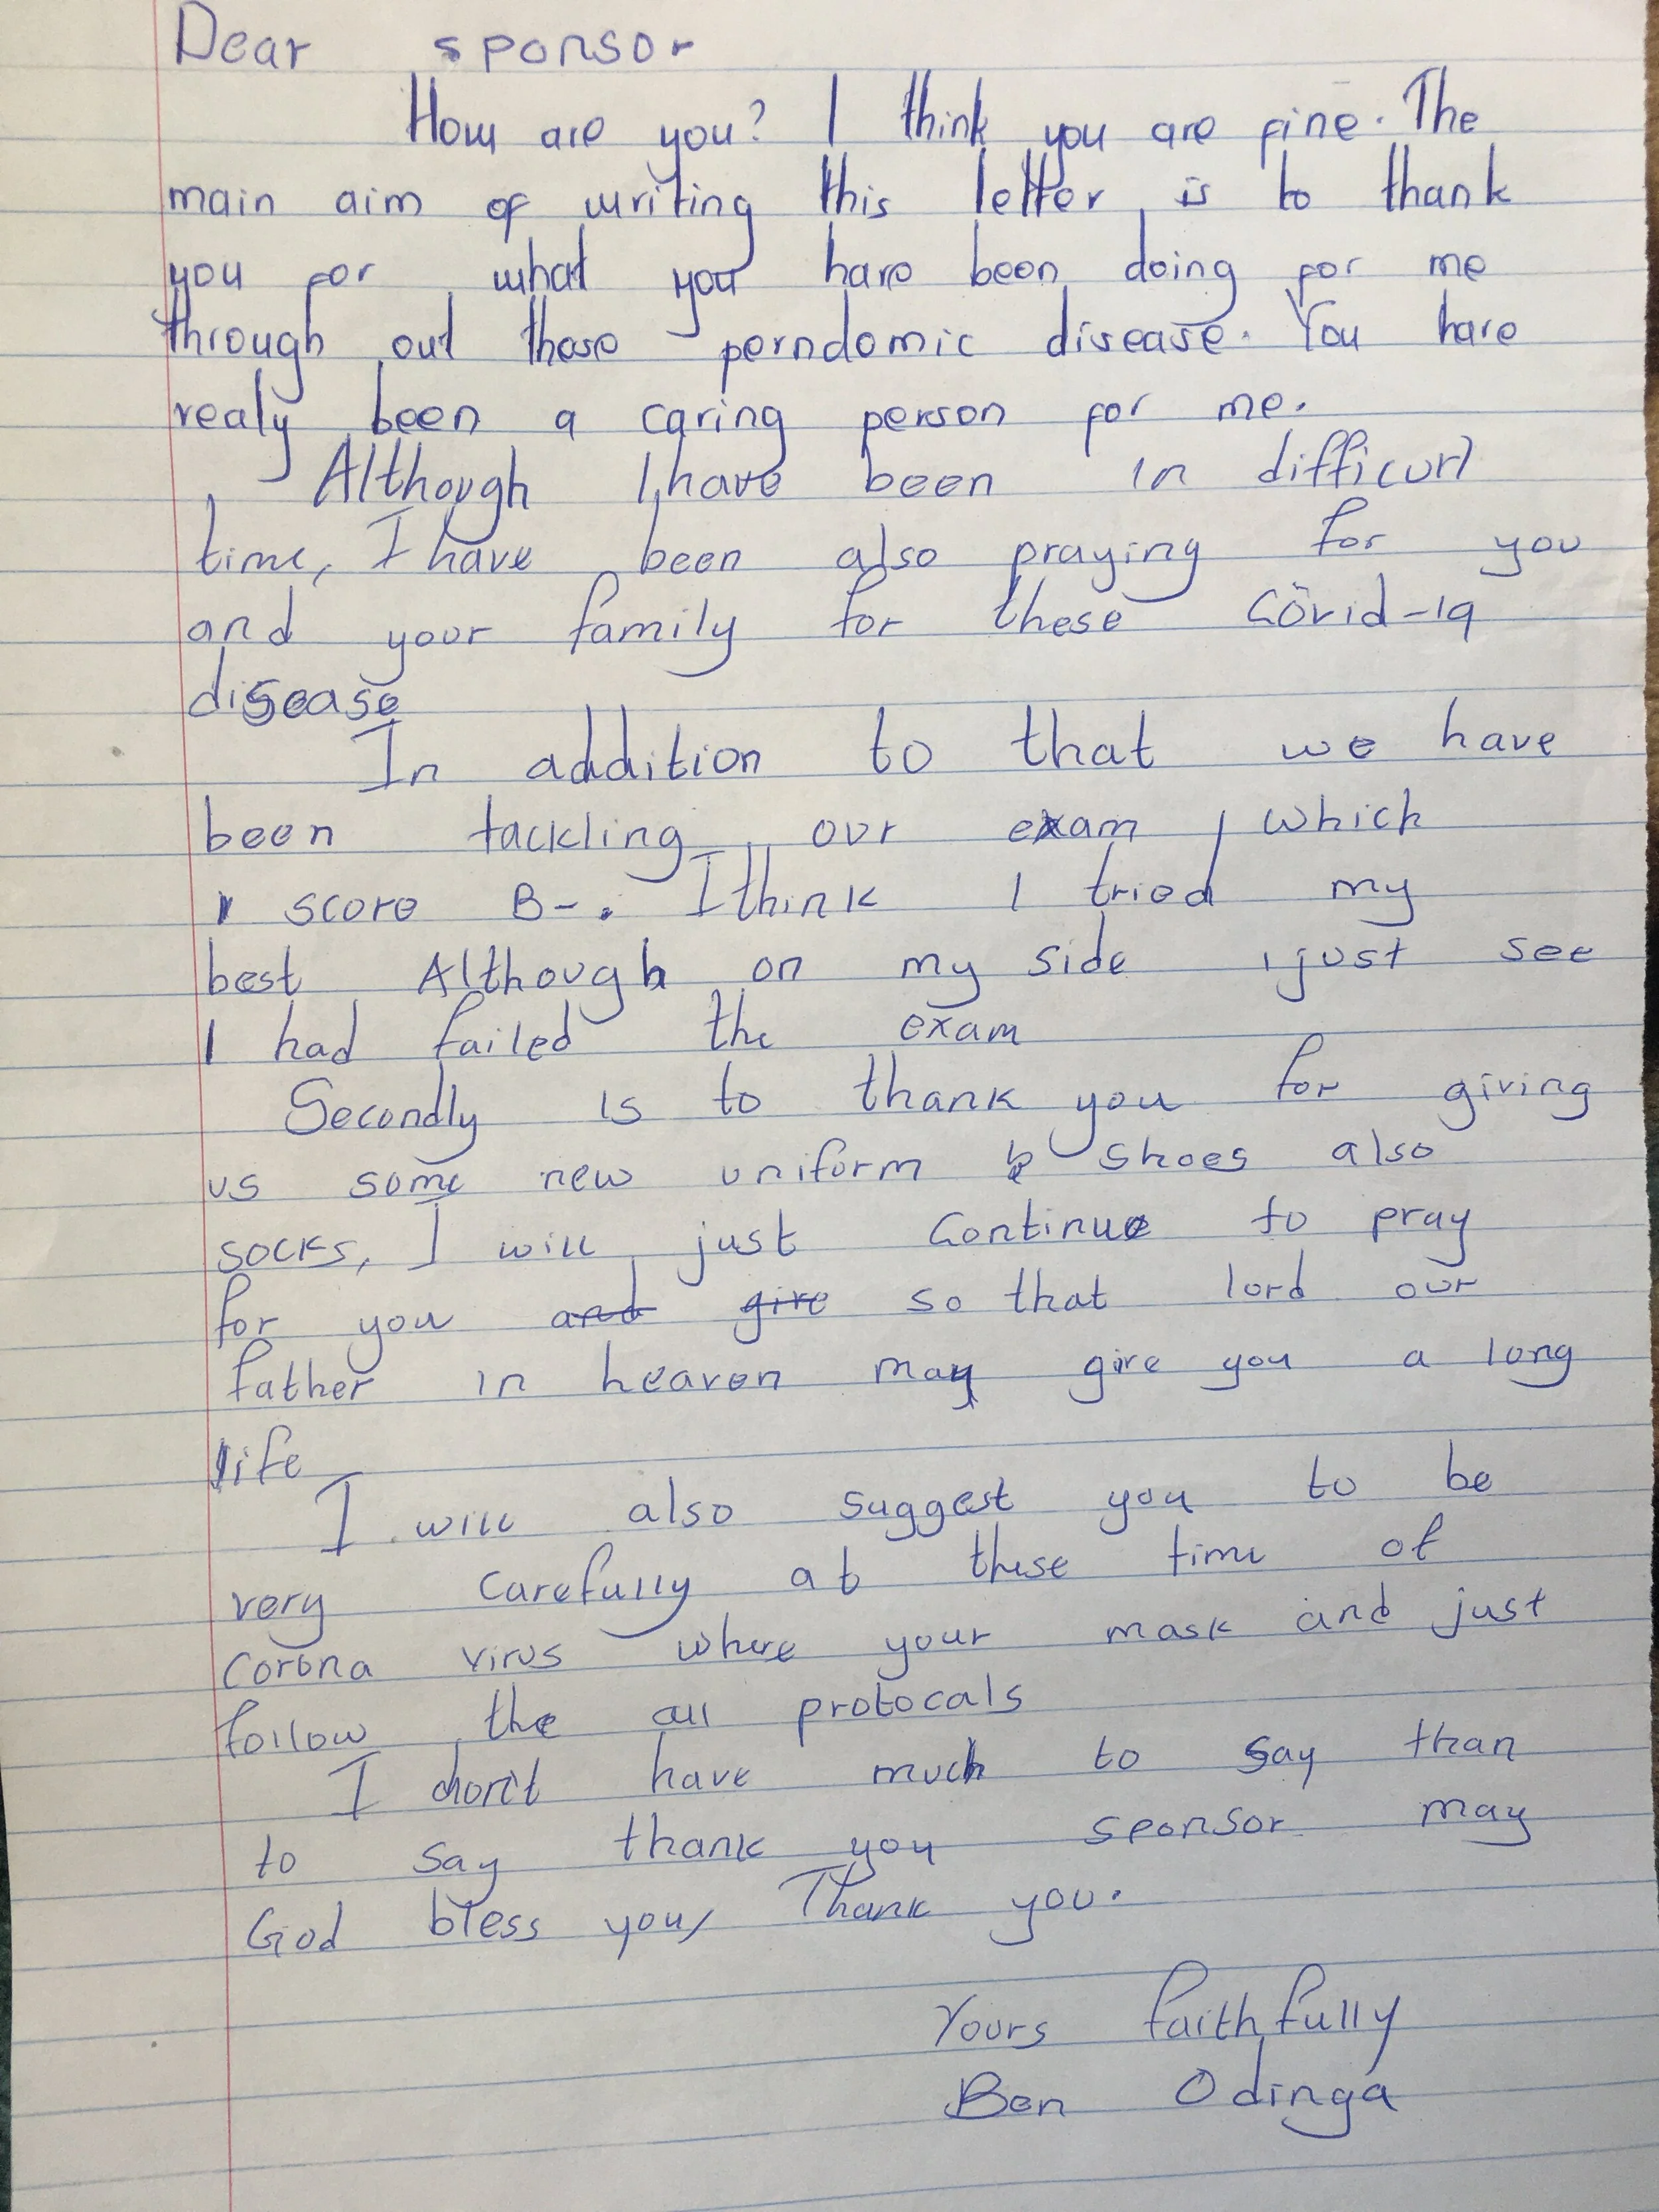 Dear sponsor
How are you? I think you are fine. The
main aim of writing this letter is to thank
you for what you have been doing for me
through out those perndomic disease. You have
realy been a caring person for me.
Although I have been in difficurt
time, I have been also praying for you
and your family for these Covid-19
disease
In addition to that we have
been tackling our exam, which
I score B-. I think I tried my
best Although on my side i just see
I had failed the exam
Secondly is to thank you for giving
us some new uniform shoes also
socks, I will just continue to pray
for you and give so that lord our
father in heaven may give you a long
life
I will also suggest you to be
very carefully at these time of
corona virus where your mask and just
follow the all protocals
I don't have much to say than
to say thank you sponsor may
God bless you, Thank you.
Yours faithfully
Ben Odinga